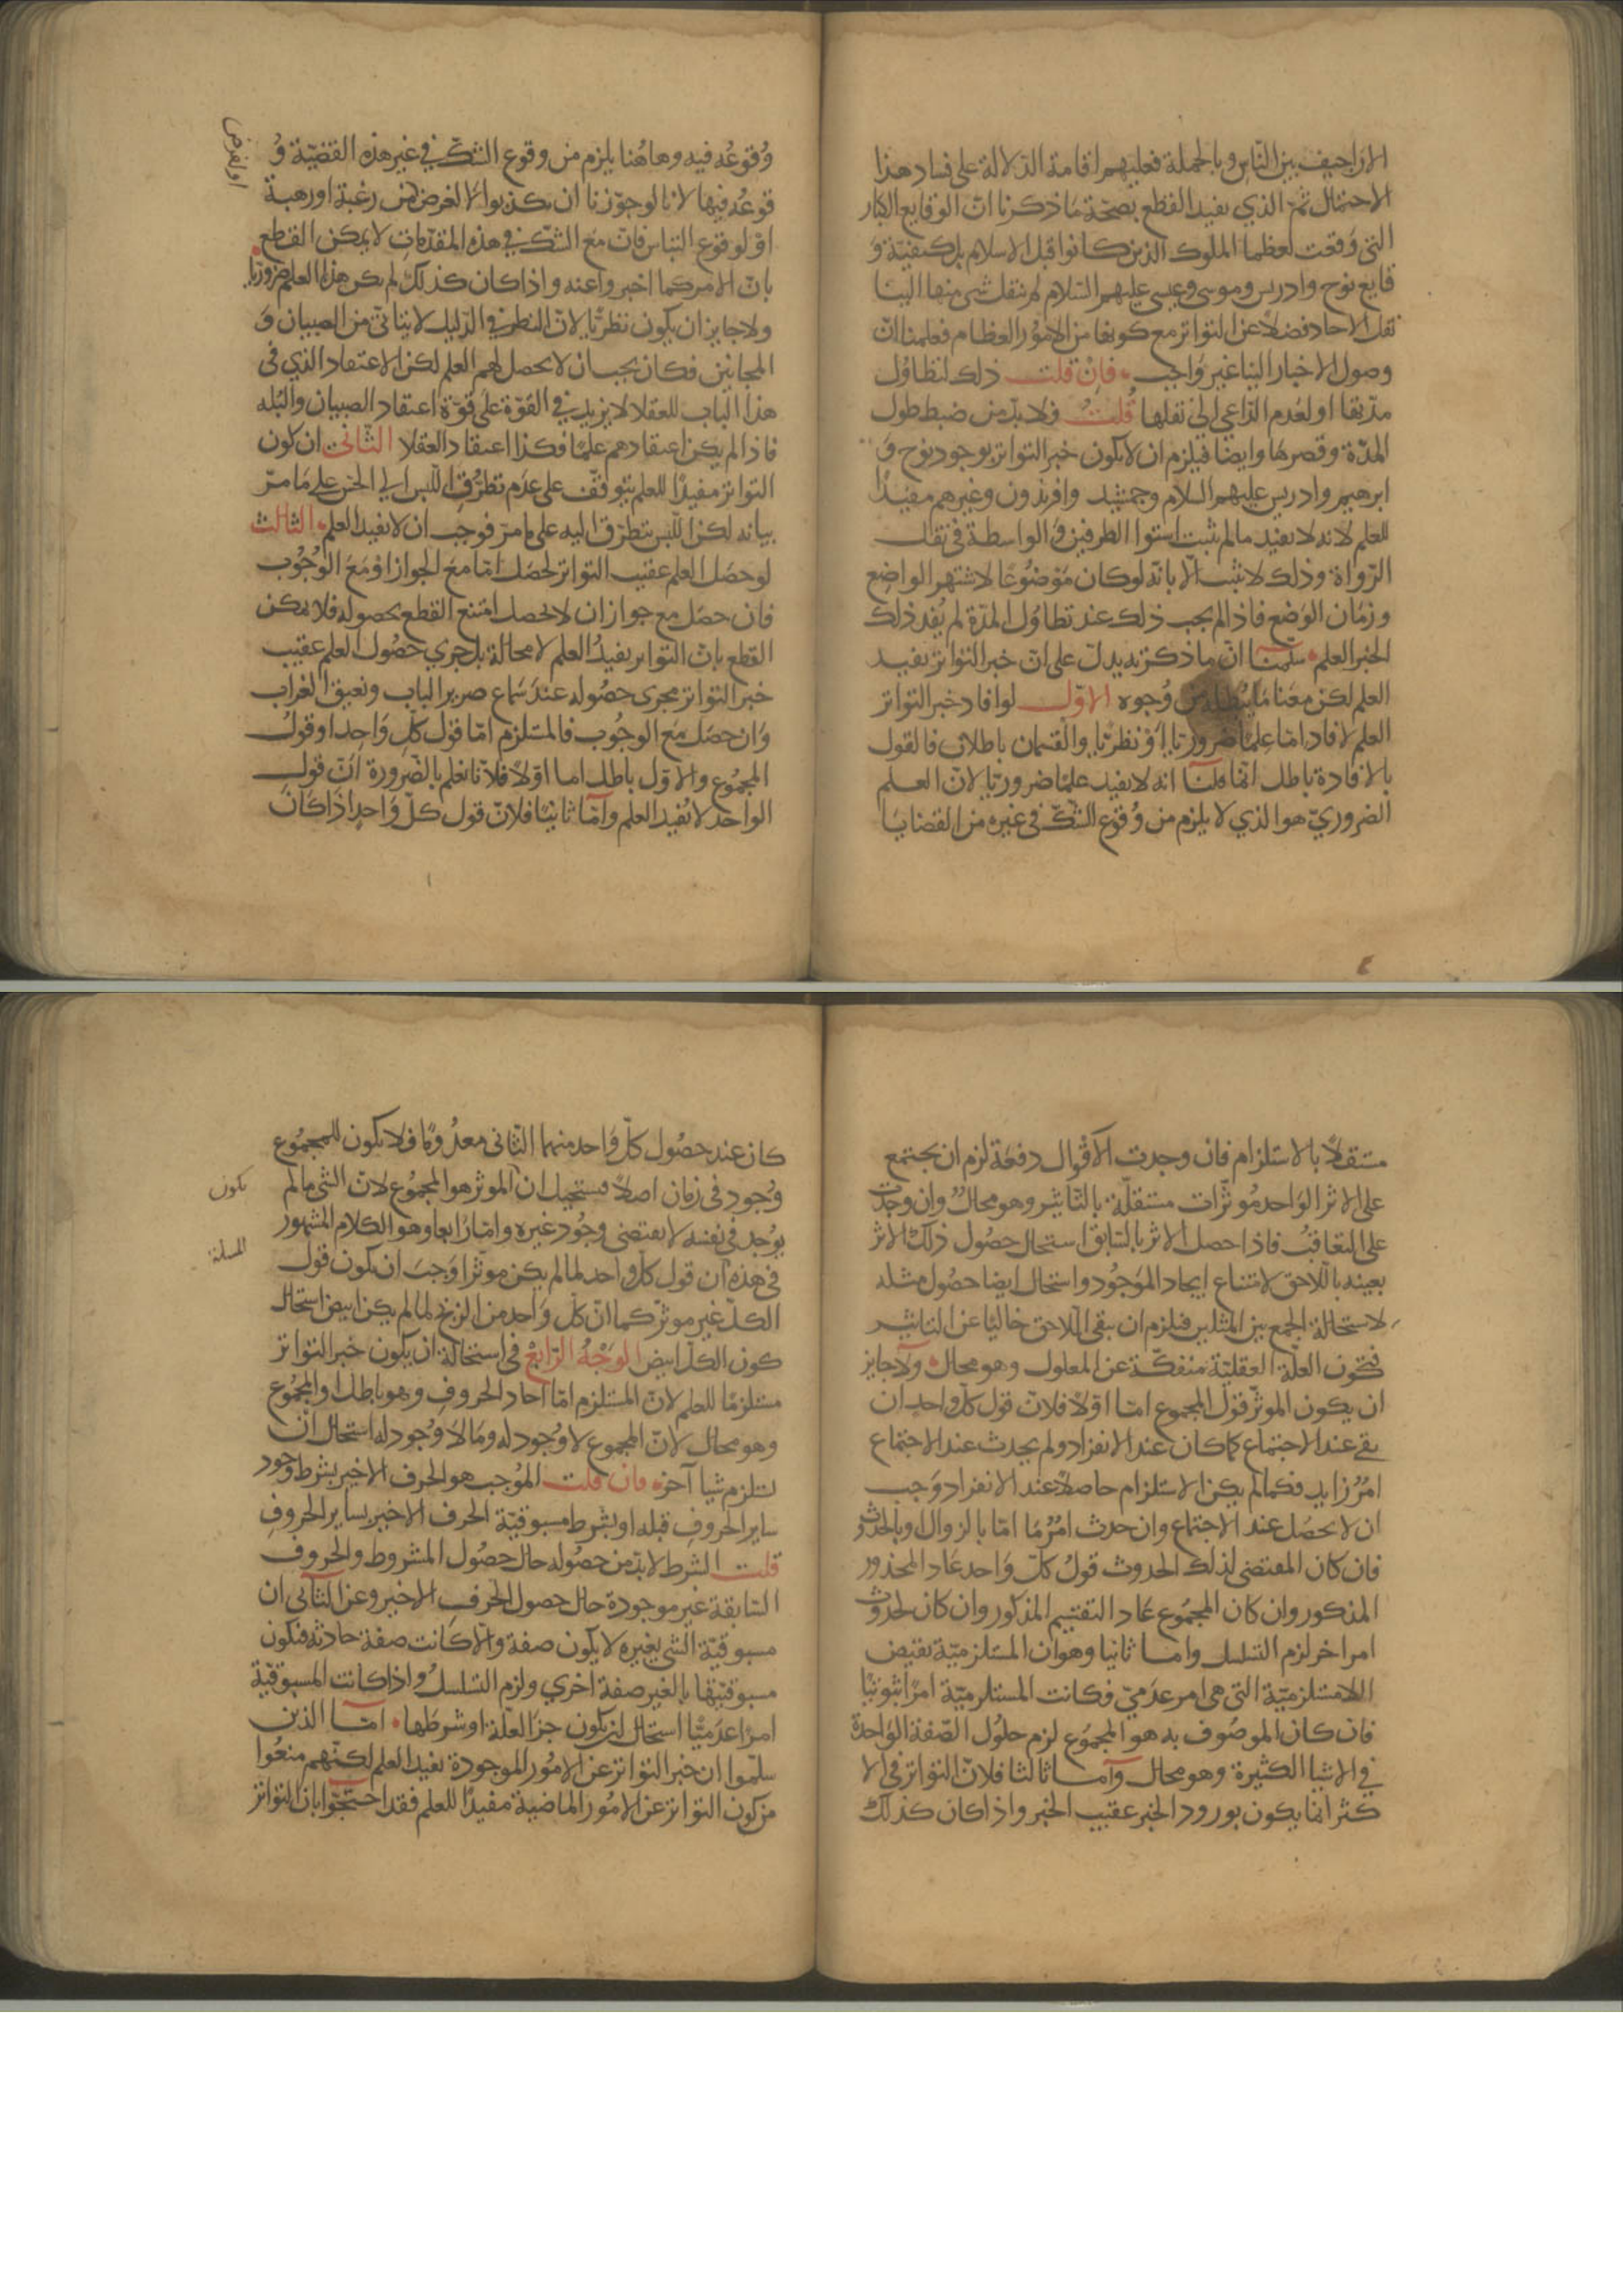 الاراجيف بين الناس وبالجملة فعليهم اقامة الدلالة على فساد هذا
الاحتمال ثم الذي يفيد القطع بصحة ما ذكرنا ان الوقايع الكبار
التي وقعت لعظما الملوك الذين كانوا قبل الاسلام بل كيفية و
قايع نوح وادريس وموسى وعيسى عليهم السلام لم ينقل شي منها الينا
نقل الاحاد فضلا عن التواتر مع كونها من الامور العظام فعلمنا ان
وصول الاخبار الينا غير واجب فان قلت ذلك لتطاول
مدتها او لعدم الداعي الى نقلها قلت فلا بد من ضبط طول
المدة وقصرها وايضا فيلزم ان لا يكون خبر التواتر بوجود نوح و
ابرهيم وادريس عليهم السلام وجمشيد وافريدون وغيرهم مفيدا
للعلم لانه لا يفيد ما لم يثبت استوا الطرفين والواسطة في نقل
الرواة وذلك لا يثبت الا بانه لو كان موضوعا لاشتهر الواضع
وزمان الوضع فاذا لم يجب ذلك عند تطاول المدة لم يفد ذلك
الخبر العلم سلمنا ان ما ذكرته يدل على ان خبر التواتر يفيد
العلم لكن معنا ما يبطله من وجوه الاول لو افاد خبر التواتر
العلم لافاد اما علما ضروريا او نظريا والقسمان باطلان فالقول
بالافادة باطل انما قلنا انه لا يفيد علما ضروريا لان العلم
الضروري هو الذي لا يلزم من وقوع الشك في غيره من القضايا
٤
وقوعه فيه وهاهنا يلزم من وقوع الشك في غير هذه القضية و
قوعه فيها لانا لو جوزنا ان يكذبوا لا لغرض من رغبة او رهبة
او لغرض
او لوقوع التباس فان مع الشك في هذه المقدمات لا يمكن القطع
بان الامر كما اخبروا عنه واذا كان كذلك لم يكن هذا العلم ضروريا
ولا جايز ان يكون نظريا لان النظر في الدليل لا يتاتى من الصبيان و
المجانين فكان يجب ان لا يحصل لهم العلم لكن الاعتقاد الذي في
هذا الباب للعقلا لا يزيد في القوة على قوة اعتقاد الصبيان والبله
فاذا لم يكن اعتقادهم علما فكذا اعتقاد العقلا الثاني ان كون
التواتر مفيدا للعلم يتوقف على عدم تطرق اللبس الى الحس على ما مر
بيانه لكن اللبس يتطرق اليه على ما مر فوجب ان لا يفيد العلم الثالث
لو حصل العلم عقيب التواتر لحصل اما مع الجواز او مع الوجوب
فان حصل مع جواز ان لا يحصل امتنع القطع بحصوله فلا يمكن
القطع بان التواتر يفيد العلم لا محالة بل جرى حصول العلم عقيب
خبر التواتر مجرى حصوله عند سماع صرير الباب ونعيق الغراب
وان حصل مع الوجوب فالمستلزم اما قول كل واحد او قول
المجموع والاول باطل اما اولا فلانا نعلم بالضرورة ان قول
الواحد لا يفيد العلم واما ثانيا فلان قول كل واحد اذا كان
مستقلا بالاستلزام فان وجدت الاقوال دفعة لزم ان يجتمع
على الاثر الواحد موثرات مستقلة بالتاثير وهو محال وان وجدت
على التعاقب فاذا حصل الاثر بالسابق استحال حصول ذلك الاثر
بعينه باللاحق لامتناع ايجاد الموجود واستحال ايضا حصول مثله
لاستحالة الجمع بين المثلين فيلزم ان يبقى اللاحق خاليا عن التاثير
فتكون العلة العقلية منفكة عن المعلول وهو محال ولا جايز
ان يكون الموثر قول المجموع اما اولا فلان قول كل واحد ان
بقي عند الاجتماع كما كان عند الانفراد ولم يحدث عند الاجتماع
امر زايد فكما لم يكن الاستلزام حاصلا عند الانفراد وجب
ان لا يحصل عند الاجتماع وان حدث امر ما اما بالزوال او بالحدوث
فان كان المقتضى لذلك الحدوث قول كل واحد عاد المحذور
المذكور وان كان المجموع عاد التقسيم المذكور وان كان لحدوث
امر اخر لزم التسلسل واما ثانيا وهو ان المستلزمية نقيض
اللامستلزمية التي هي امر عدمي فكانت المستلزمية امرا ثبوتيا
فان كان الموصوف به هو المجموع لزم حلول الصفة الواحدة
في الاشيا الكثيرة وهو محال واما ثالثا فلان التواتر في الا
كثر انما يكون بورود الخبر عقيب الخبر واذا كان كذلك
كان عند حصول كل واحد منهما الثاني معدوما فلا يكون للمجموع
وجود في زمان اصلا فيستحيل ان الموثر هو المجموع لان الشي ما لم
يكون
يوجد في نفسه لا يقتضي وجود غيره واما رابعا وهو الكلام المشهور
المسلة
في هذه ان قول كل واحد لما لم يكن موثرا وجب ان يكون قول
الكل غير موثر كما ان كل واحد من الزنج لما لم يكن ابيض استحال
كون الكل ابيض الوجه الرابع في استحالة ان يكون خبر التواتر
مستلزما للعلم لان المستلزم اما احاد الحروف وهو باطل او المجموع
وهو محال لان المجموع لا وجود له وما لا وجود له استحال ان
يستلزم شيا آخر فان قلت الموجب هو الحرف الاخير بشرط وجود
ساير الحروف قبله او بشرط مسبوقية الحرف الاخير بساير الحروف
قلت الشرط لا بد من حصوله حال حصول المشروط والحروف
السابقة غير موجودة حال حصول الحرف الاخير وعن الثاني ان
مسبوقية الشي بغيره لا يكون صفة والا كانت صفة حادثة فتكون
مسبوقيتها بالغير صفة اخرى ولزم التسلسل واذا كانت المسبوقية
امرا عدميا استحال ان يكون جزا لعلة او شرطها اما الذين
سلموا ان خبر التواتر عن الامور الموجودة يفيد العلم لكنهم منعوا
من كون التواتر عن الامور الماضية مفيدا للعلم فقد احتجوا بان التواتر